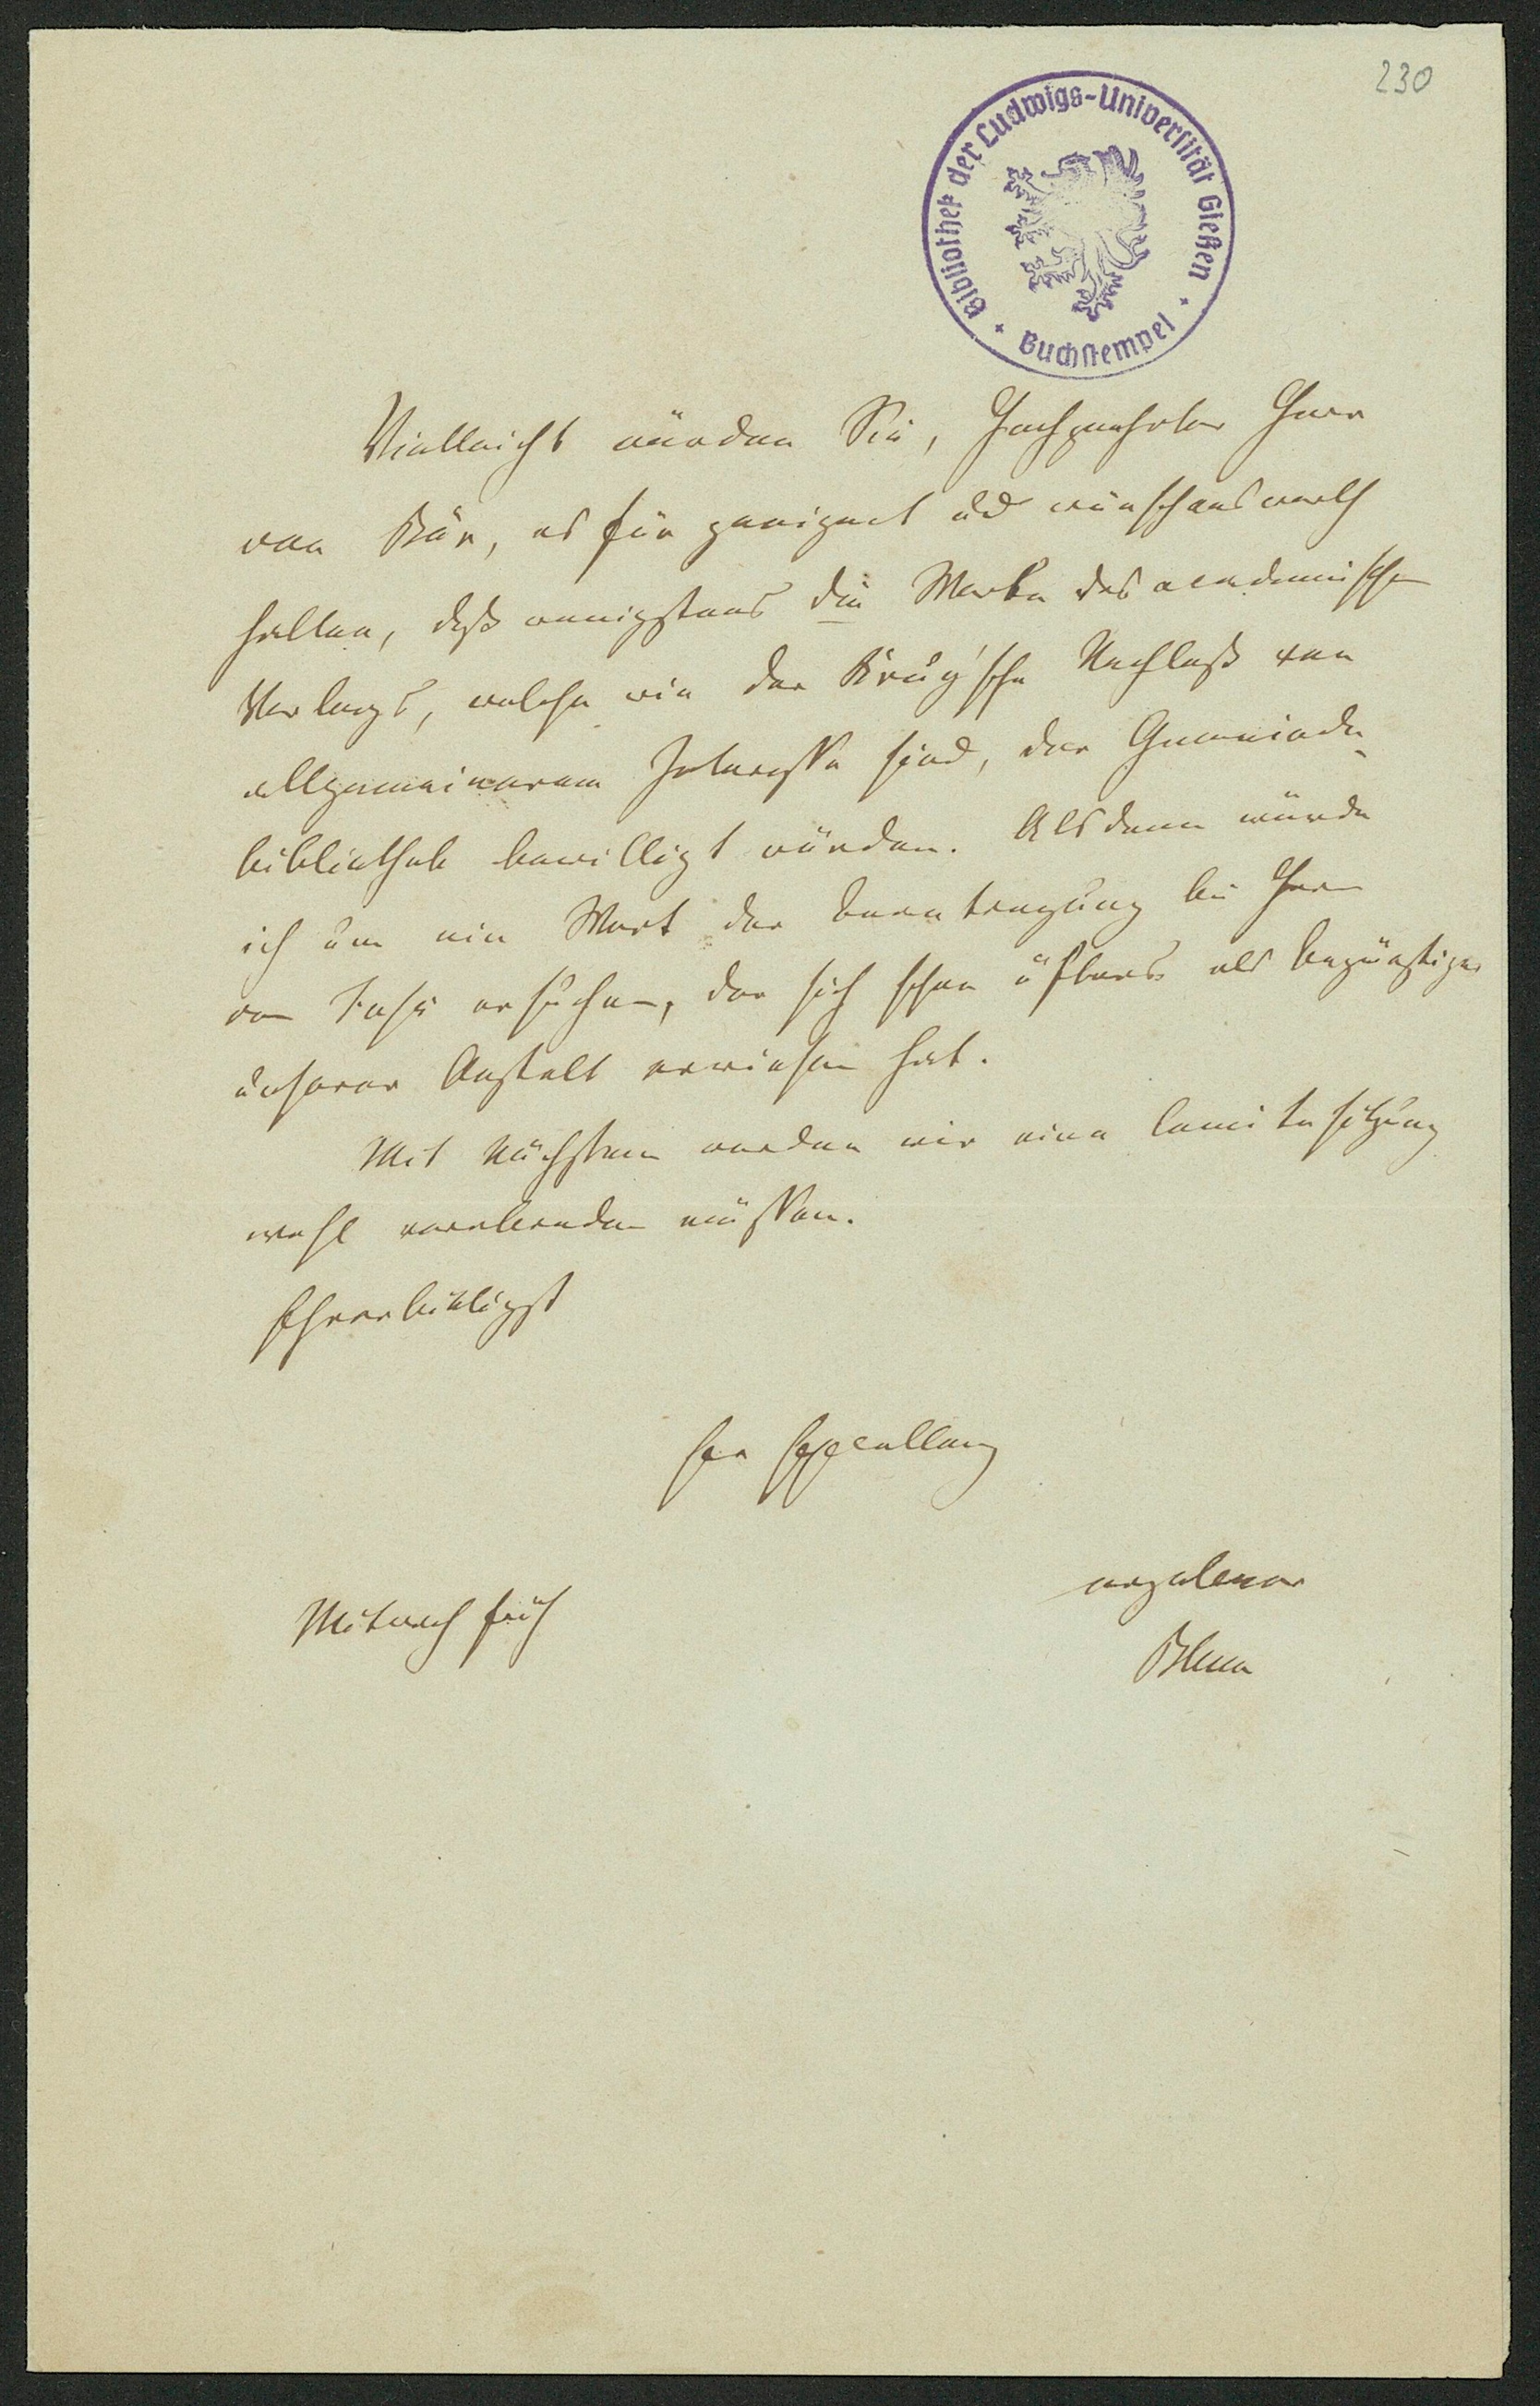 230
Bibliothek der Ludwigs-Universität Gießen
Buchstempel
Vielleicht würden Sie, hochgeehrter Herr
von Bär, es für geeignet und wünschenswerth
halten, daß wenigstens die Werke des academischen
Verlags, welche wie der Krug'sche Nachlaß von
allgemeinerem Interesse sind, der Gemeinde-
bibliothek bewilligt würden. Alsdann würde
ich um ein Wort der bei Herrn
von Fuß ersuchen, der sich schon öfters als begünstiger
unserer Anstalt erwiesen hat.
Mit Nächstem werden wir eine Comitésitzung
wohl müssen.
Ehrerbietigst
Ew Excellenz
ergebener
Mitwoch früh
Blum